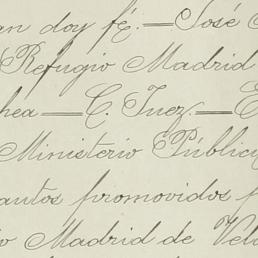 an doy fé.—José
Refugio Madrid
hea—C. Juez.—E
Ministerio Públic
autos promovidos p
o Madrid de Vel